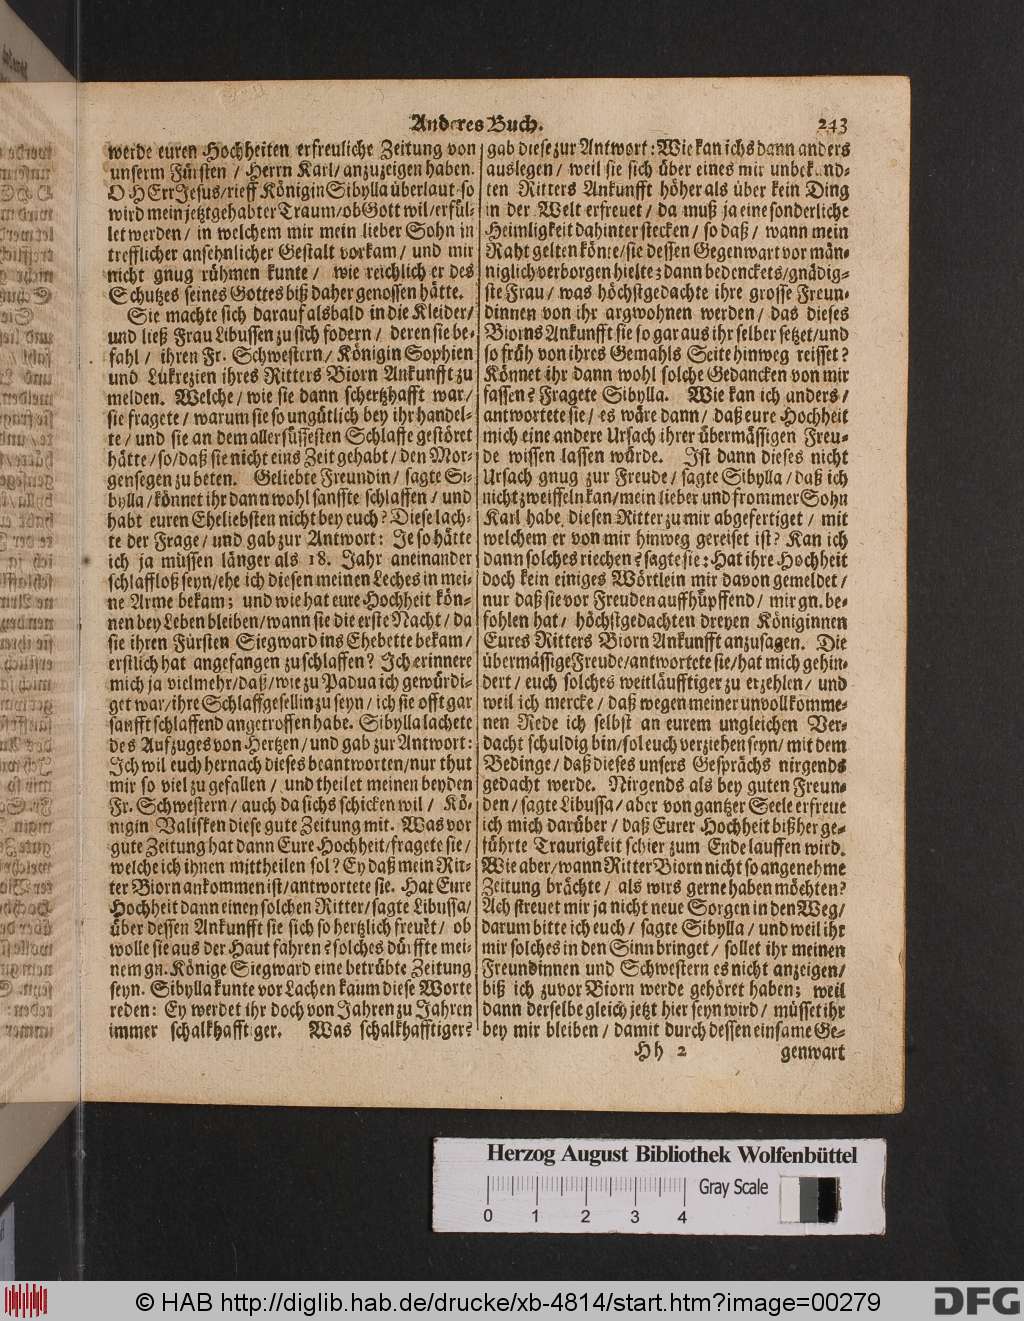 Anderes Buch. 243
werde euren Hochheiten erfreuliche Zeitung von
unserm Fürsten / Herrn Karl / anzuzeigen haben.
O HErr Jesus / rieff Königin Sibylla überlaut / so
wird mein jetztgehabter Traum / ob Gott wil / erfül-
let werden / in welchem mir mein lieber Sohn in
trefflicher ansehnlicher Gestalt vorkam / und mir
nicht gnug rühmen kunte / wie reichlich er des
Schutzes seines Gottes biß daher genossen hätte.
Sie machte sich darauf alsbald in die Kleider /
und ließ Frau Libussen zu sich fodern / deren sie be-
fahl / ihren Fr. Schwestern / Königin Sophien
und Lukrezien ihres Ritters Biorn Ankunfft zu
melden. Welche / wie sie dann schertzhafft war /
sie fragete / warum sie so ungütlich bey ihr handel-
te / und sie an dem allersüssesten Schlaffe gestöret
hätte / so / daß sie nicht eins Zeit gehabt / den Mor-
gensegen zu beten. Geliebte Freundin / sagte Si-
bylla / könnet ihr dann wohl sanffte schlaffen / und
habt euren Eheliebsten nicht bey euch? Diese lach-
te der Frage / und gab zur Antwort: Je so hätte
ich ja müssen länger als 18. Jahr aneinander
schlaffloß seyn / ehe ich diesen meinen Leches in mei-
ne Arme bekam; und wie hat eure Hochheit kön-
nen bey Leben bleiben / wann sie die erste Nacht / da
sie ihren Fürsten Siegward ins Ehebette bekam /
erstlich hat angefangen zu schlaffen? Ich erinnere
mich ja vielmehr / daß / wie zu Padua ich gewürdi-
get war / ihre Schlaffgesellin zu seyn / ich sie offt gar
sanfft schlaffend angetroffen habe. Sibylla lachete
des Aufzuges von Hertzen / und gab zur Antwort:
Ich wil euch hernach dieses beantworten / nur thut
mir so viel zu gefallen / und theilet meinen beyden
Fr. Schwestern / auch da sichs schicken wil / Kö-
nigin Valisken diese gute Zeitung mit. Was vor
gute Zeitung hat dann Eure Hochheit / fragete sie /
welche ich ihnen mittheilen sol? Ey daß mein Rit-
ter Biorn ankommen ist / antwortete sie. Hat Eure
Hochheit dann einen solchen Ritter / sagte Libussa /
über dessen Ankunfft sie sich so hertzlich freuet / ob
wolle sie aus der Haut fahren? solches dürffte mei-
nem gn. Könige Siegward eine betrübte Zeitung
seyn. Sibylla kunte vor Lachen kaum diese Worte
reden: Ey werdet ihr doch von Jahren zu Jahren
immer schalkhafftiger. Was schalkhafftiger?
gab diese zur Antwort: Wie kan ichs dann anders
auslegen / weil sie sich über eines mir unbekand-
ten Ritters Ankunfft höher als über kein Ding
in der Welt erfreuet / da muß ja eine sonderliche
Heimligkeit dahinter stecken / so daß / wann mein
Raht gelten könte / sie dessen Gegenwart vor män-
niglich verborgen hielte; dann bedenckets / gnädig-
ste Frau / was höchstgedachte ihre grosse Freun-
dinnen von ihr argwohnen werden / das dieses
Biorns Ankunfft sie so gar aus ihr selber setzet / und
so früh von ihres Gemahls Seite hinweg reisset?
Könnet ihr dann wohl solche Gedancken von mir
fassen? Fragete Sibylla. Wie kan ich anders /
antwortete sie / es wäre dann / daß eure Hochheit
mich eine andere Ursach ihrer übermässigen Freu-
de wissen lassen würde. Ist dann dieses nicht
Ursach gnug zur Freude / sagte Sibylla / daß ich
nicht zweiffeln kan / mein lieber und frommer Sohn
Karl habe diesen Ritter zu mir abgefertiget / mit
welchem er von mir hinweg gereiset ist? Kan ich
dann solches riechen? sagte sie: Hat ihre Hochheit
doch kein einiges Wörtlein mir davon gemeldet /
nur daß sie vor Freuden auffhüpffend / mir gn. be-
fohlen hat / höchstgedachten dreyen Königinnen
Eures Ritters Biorn Ankunfft anzusagen. Die
übermässige Freude / antwortete sie / hat mich gehin-
dert / euch solches weitläufftiger zu erzehlen / und
weil ich mercke / daß wegen meiner unvollkomme-
nen Rede ich selbst an eurem ungleichen Ver-
dacht schuldig bin / sol euch verziehen seyn / mit dem
Bedinge / daß dieses unsers Gesprächs nirgends
gedacht werde. Nirgends als bey guten Freun-
den / sagte Libussa / aber von gantzer Seele erfreue
ich mich darüber / daß Eurer Hochheit bißher ge-
führte Traurigkeit schier zum Ende lauffen wird.
Wie aber / wann Ritter Biorn nicht so angenehme
Zeitung brächte / als wirs gerne haben möchten?
Ach streuet mir ja nicht neue Sorgen in den Weg /
darum bitte ich euch / sagte Sibylla / und weil ihr
mir solches in den Sinn bringet / sollet ihr meinen
Freundinnen und Schwestern es nicht anzeigen /
biß ich zuvor Biorn werde gehöret haben; weil
dann derselbe gleich jetzt hier seyn wird / müsset ihr
bey mir bleiben / damit durch dessen einsame Ge-
Hh 2 genwart
Herzog August Bibliothek Wolfenbüttel
Gray Scale
0 1 2 3 4
© HAB http://diglib.hab.de/drucke/xb-4814/start.htm?image=00279
DFG